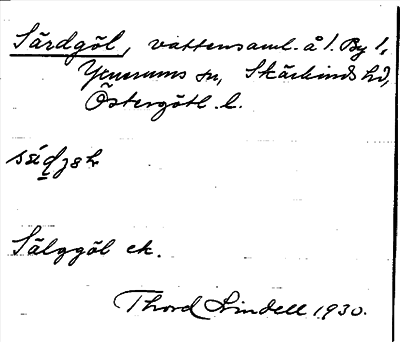 Särdgöl, vattensaml. å 1. By 1,
Yxnerums sn, Skärkinds hd,
Östergötl. l.
Sälggöl ek.
Thord Lindell 1930.